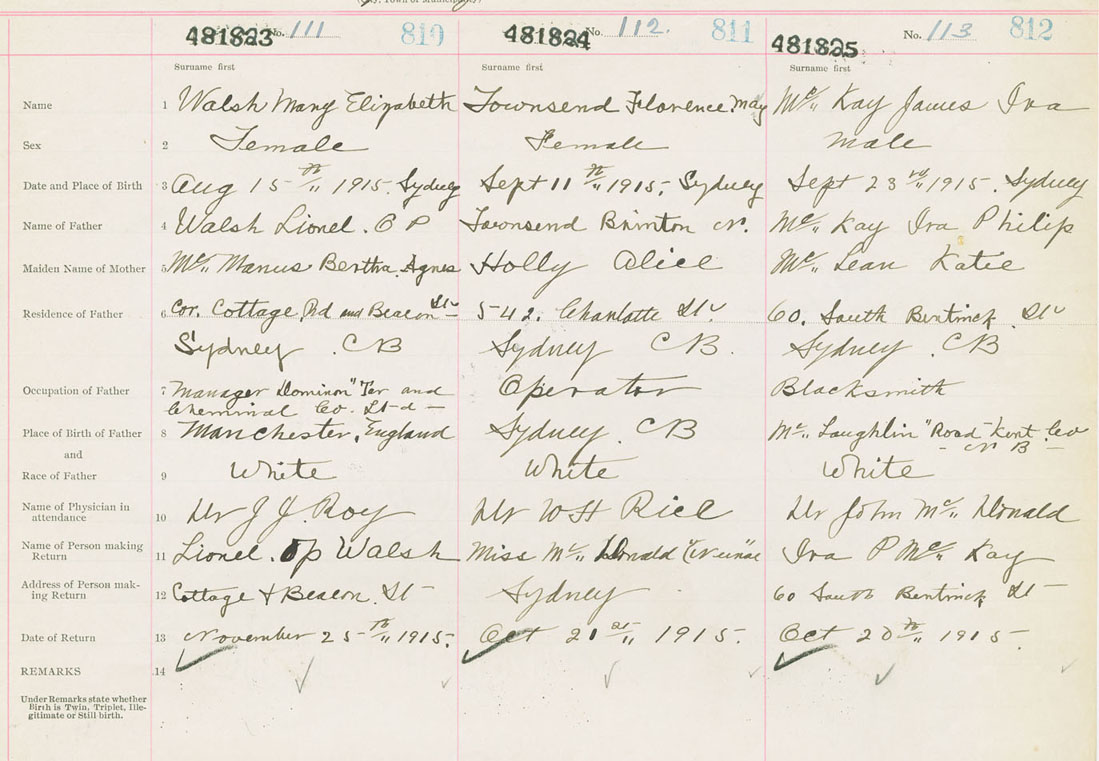 481823 No. 111 810 481824 No. 112. 811 481825 No. 113 812
Surname first Surname first Surname first
Name 1 Walsh Mary Elizabeth Townsend Florence May Mc Kay James Ira
Sex 2 Female Female Male
Date and Place of Birth 3 Aug 15th 1915. Sydney Sept 11th 1915, Sydney Sept 23rd 1915. Sydney
Name of Father 4 Walsh Lionel. O P Townsend Brinton N. Mc Kay Ira Philip
Maiden Name of Mother 5 Mc Manus Bertha Agnes Holly Alice Mc Lean Katie
Residence of Father 6 Cor. Cottage Rd and Beacon St 542. Charlotte St 60. South Bentinck St
Sydney. CB Sydney CB. Sydney. CB
Occupation of Father 7 Manager Dominion" Tar and Operator Blacksmith
Cheminal Co. Ltd
Place of Birth of Father 8 Manchester, England Sydney. CB Mc Laughlin "Road" Kent Co
and N B
Race of Father 9 White White White
Name of Physician in
attendance 10 Dr J J. Roy Dr W H Rice Dr John Mc Donald
Name of Person making
Return 11 Lionel. O P Walsh Miss Mc Donald Ira P Mc Kay
Address of Person mak-
ing Return 12 Cottage & Beacon. St Sydney 60 South Bentinck St
Date of Return 13 November 25th 1915. Oct 21st 1915. Oct 20th 1915
REMARKS 14
Under Remarks state whether
Birth is Twin, Triplet, Ille-
gitimate or Still birth.